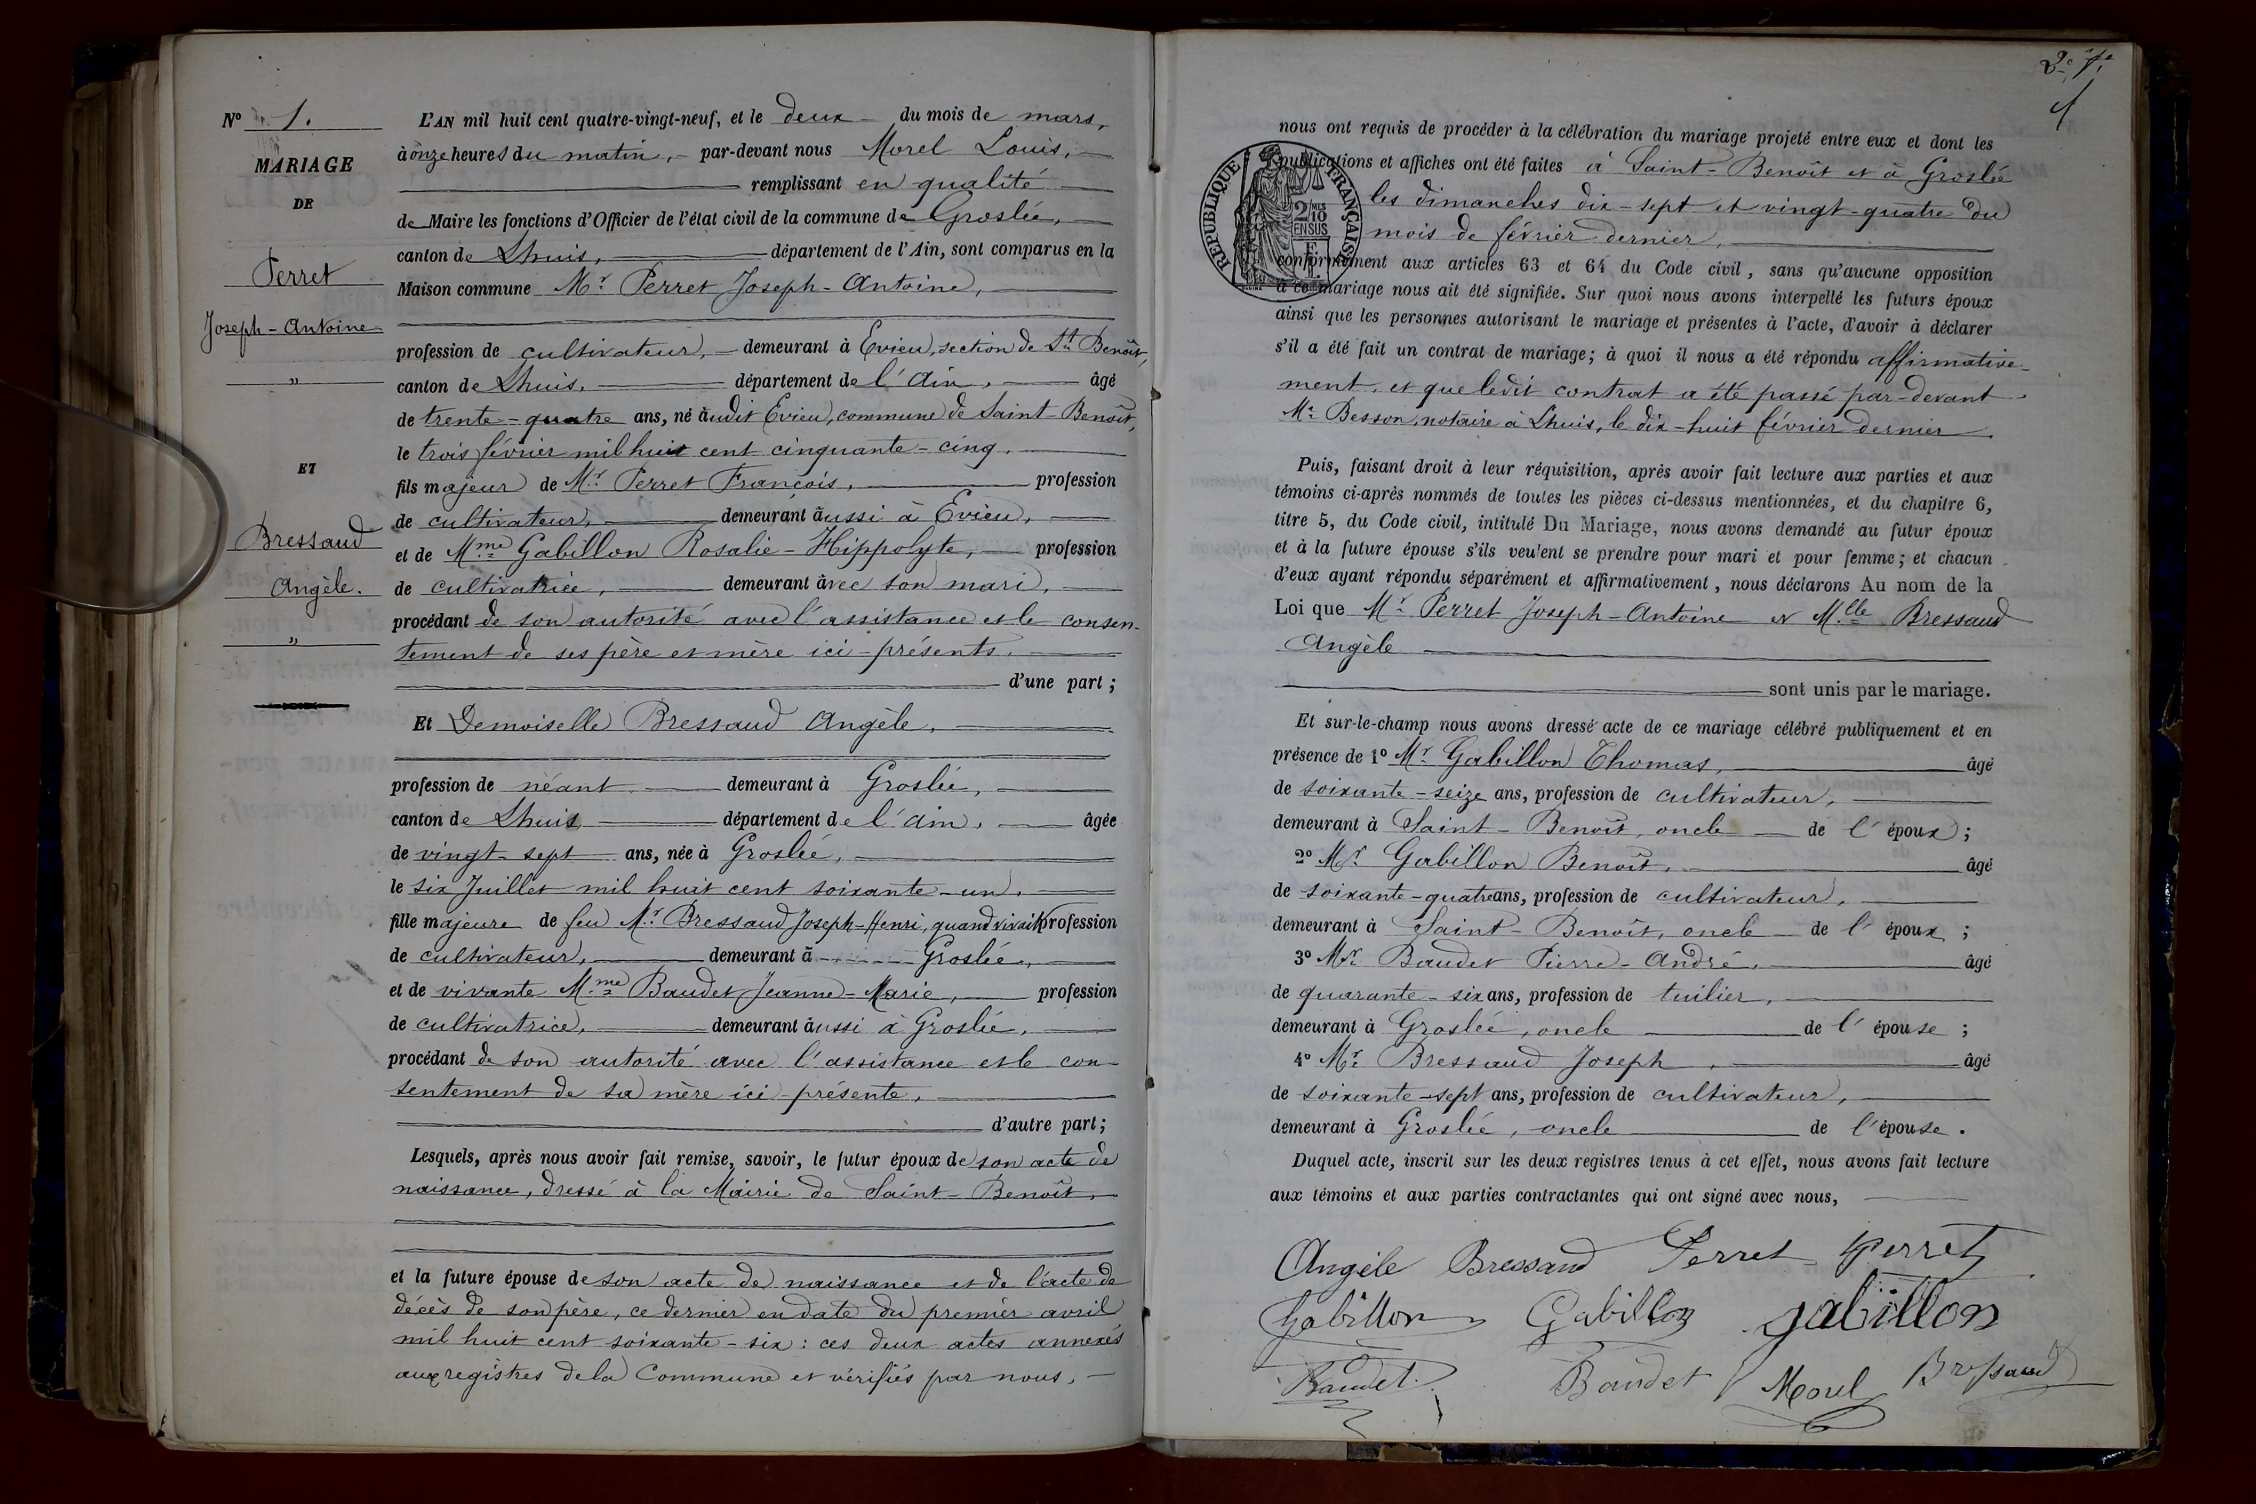 Nº 1.
MARIAGE
DE
Perret
Joseph-Antoine
"
ET
Bressaud
Angèle.
"
L'AN mil huit cent quatre-vingt-neuf, et le deux du mois de mars,
à onze heures du matin, par-devant nous Morel Louis,
remplissant en qualité
de Maire les fonctions d'Officier de l'état civil de la commune de Groslée,
canton de Lhuis, département de l'Ain, sont comparus en la
Maison commune Mr Perret Joseph-Antoine,
profession de cultivateur, demeurant à Evieu, section de St Benoît,
canton de Lhuis, département de l'Ain, âgé
de trente-quatre ans, né audit Evieu, commune de Saint-Benoît,
le trois février mil huit cent cinquante-cinq,
fils majeur de Mr Perret François, profession
de cultivateur, demeurant aussi à Evieu,
et de Mme Gabillon Rosalie-Hippolyte, profession
de cultivatrice, demeurant avec son mari,
procédant de son autorité avec l'assistance et le consen-
tement de ses père et mère ici-présents.
d'une part ;
Et Demoiselle Bressaud Angèle,
profession de néant demeurant à Groslée,
canton de Lhuis département de l'Ain, âgée
de vingt-sept ans, née à Groslée,
le six Juillet mil huit cent soixante-un,
fille majeure de feu Mr Bressaud Joseph-Henri, quand vivait profession
de cultivateur, demeurant à Groslée,
et de vivante Mme Baudet Jeanne-Marie, profession
de cultivatrice, demeurant aussi à Groslée,
procédant de son autorité avec l'assistance et le con
sentement de sa mère ici-présente,
d'autre part ;
Lesquels, après nous avoir fait remise, savoir, le futur époux de son acte de
naissance, dressé à la Mairie de Saint-Benoît,
et la future épouse de son acte de naissance et de l'acte de
décès de son père, ce dernier en date du premier avril
mil huit cent soixante-six : ces deux actes annexés
aux registres de la Commune et vérifiés par nous,
nous ont requis de procéder à la célébration du mariage projeté entre eux et dont les
publications et affiches ont été faites à Saint-Benoît et à Groslée
les dimanches dix-sept et vingt-quatre du
mois de février dernier,
RÉPUBLIQUE FRANÇAISE
2/10
EN SUS
conformément aux articles 63 et 64 du Code civil, sans qu'aucune opposition
à ce mariage nous ait été signifiée. Sur quoi nous avons interpellé les futurs époux
ainsi que les personnes autorisant le mariage et présentes à l'acte, d'avoir à déclarer
s'il a été fait un contrat de mariage ; à quoi il nous a été répondu affirmative-
ment, et que ledit contrat a été passé par-devant
Me Besson, notaire à Lhuis, le dix-huit février dernier.
Puis, faisant droit à leur réquisition, après avoir fait lecture aux parties et aux
témoins ci-après nommés de toutes les pièces ci-dessus mentionnées, et du chapitre 6,
titre 5, du Code civil, intitulé Du Mariage, nous avons demandé au futur époux
et à la future épouse s'ils veulent se prendre pour mari et pour femme ; et chacun
d'eux ayant répondu séparément et affirmativement, nous déclarons Au nom de la
Loi que Mr Perret Joseph-Antoine et Mlle Bressaud
Angèle
sont unis par le mariage.
Et sur-le-champ nous avons dressé acte de ce mariage célébré publiquement et en
présence de 1º Mr Gabillon Thomas, âgé
de soixante-seize ans, profession de cultivateur,
demeurant à Saint-Benoît, oncle de l'époux ;
2º Mr Gabillon Benoît, âgé
de soixante-quatre ans, profession de cultivateur,
demeurant à Saint-Benoît, oncle de l'époux ;
3º Mr Baudet Pierre-André, âgé
de quarante-six ans, profession de tuilier,
demeurant à Groslée, oncle de l'épouse ;
4º Mr Bressaud Joseph, âgé
de soixante-sept ans, profession de cultivateur,
demeurant à Groslée, oncle de l'épouse.
Duquel acte, inscrit sur les deux registres tenus à cet effet, nous avons fait lecture
aux témoins et aux parties contractantes qui ont signé avec nous,
Angèle Bressaud Perret Perret
Gabillon Gabillon gabillon
Baudet Baudet Morel Bressaud